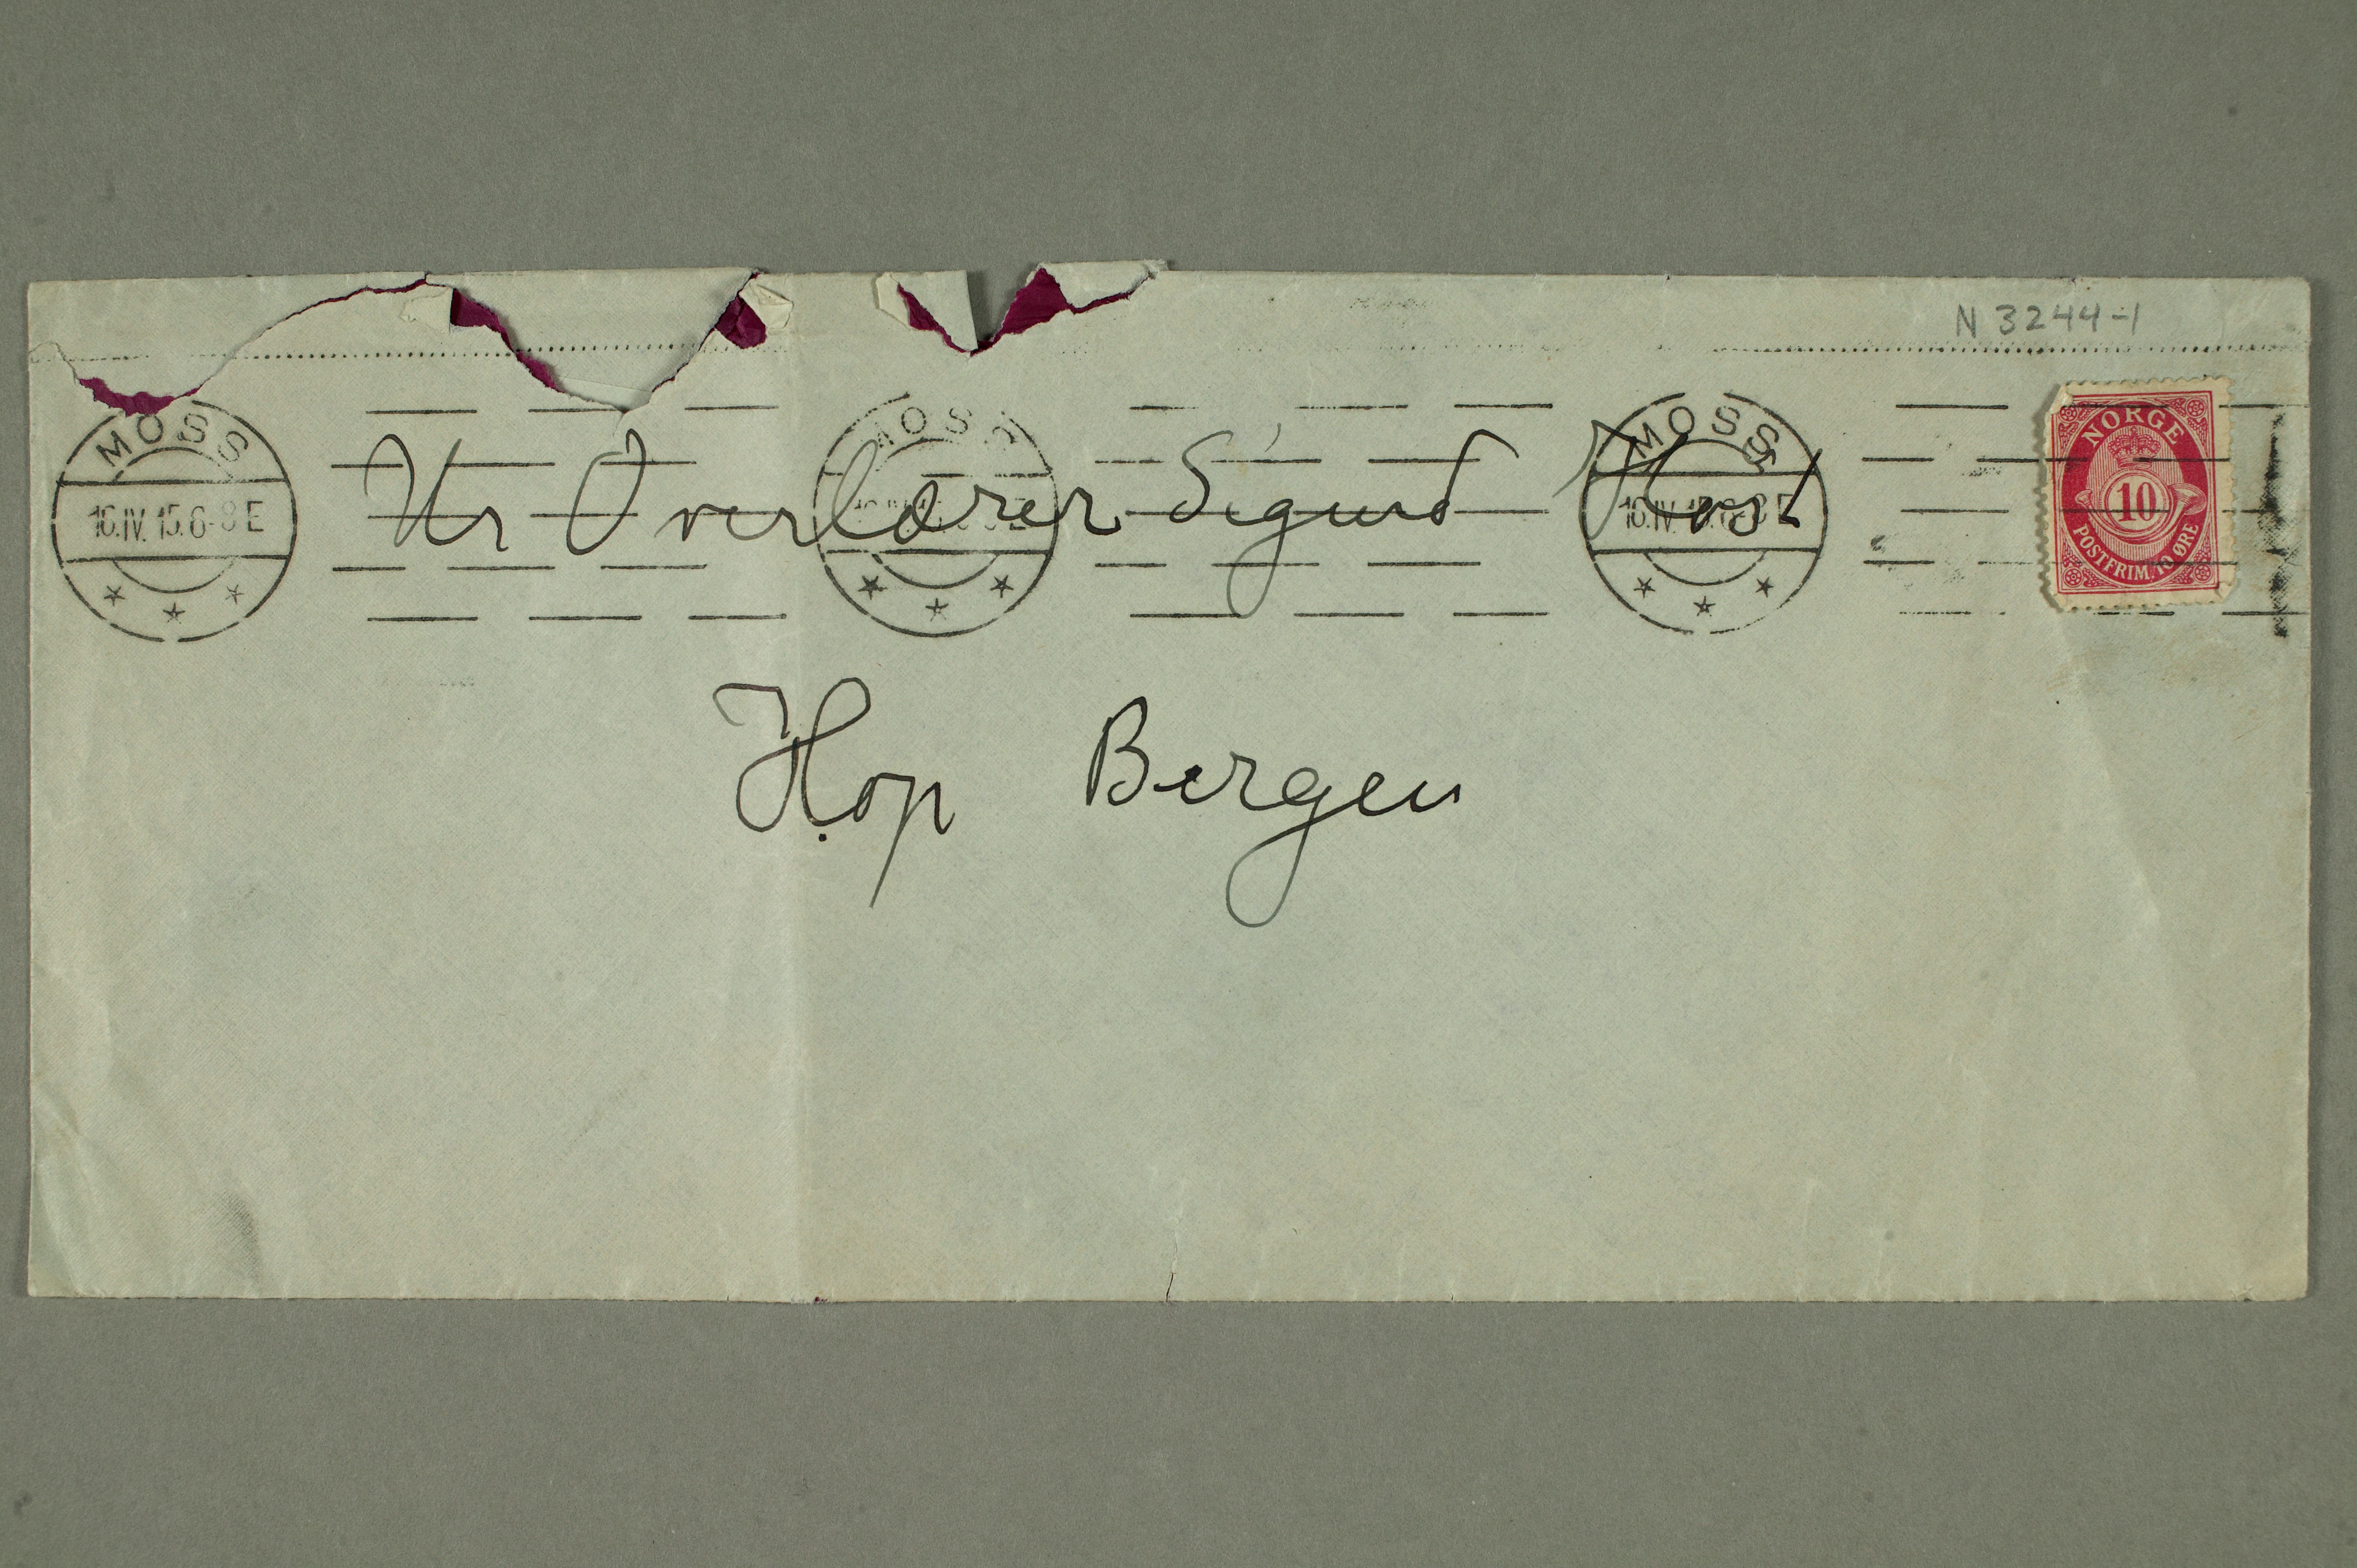 N 3244-1
MOSS
16.IV.15.6-8 E
MOSS
MOSS
16.IV.15.6-8 E
NORGE
10
POSTFRIM. 10 ØRE
Hr Overlærer Sigurd Høst
Hop Bergen